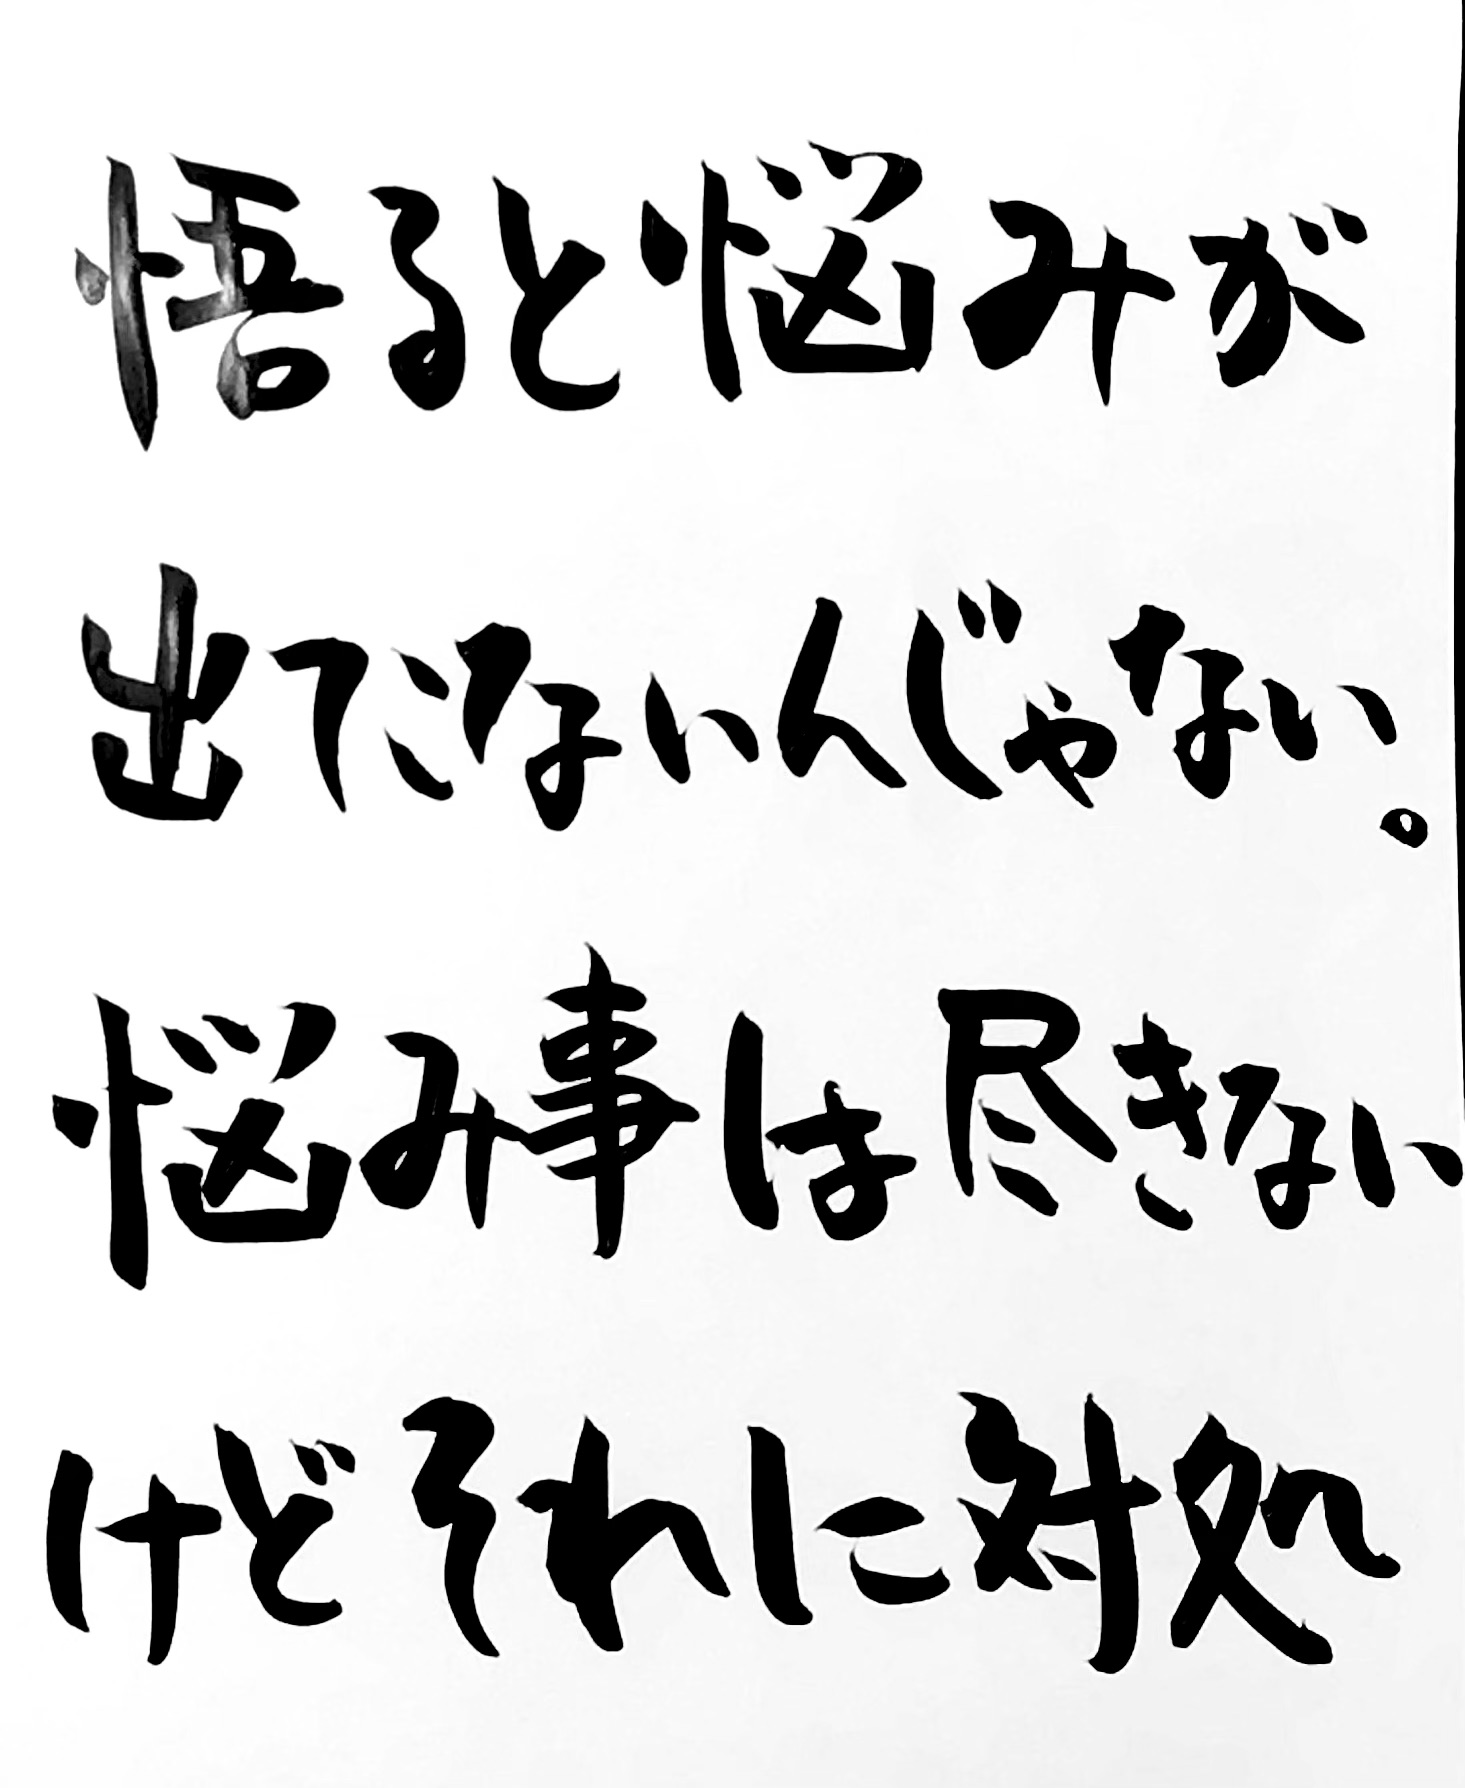 悟ると悩みが
出てこないんじゃない。
悩み事は尽きない
けどそれに対処